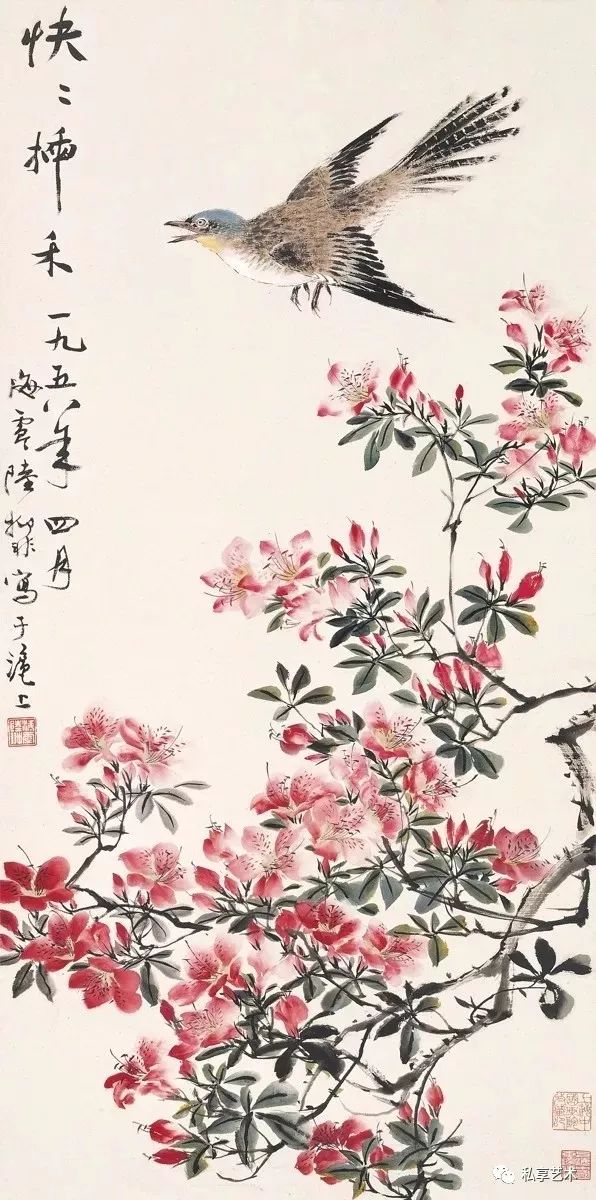 快〻插禾一九五八年四月
海虞陸抑非寫于滬上
私享艺术